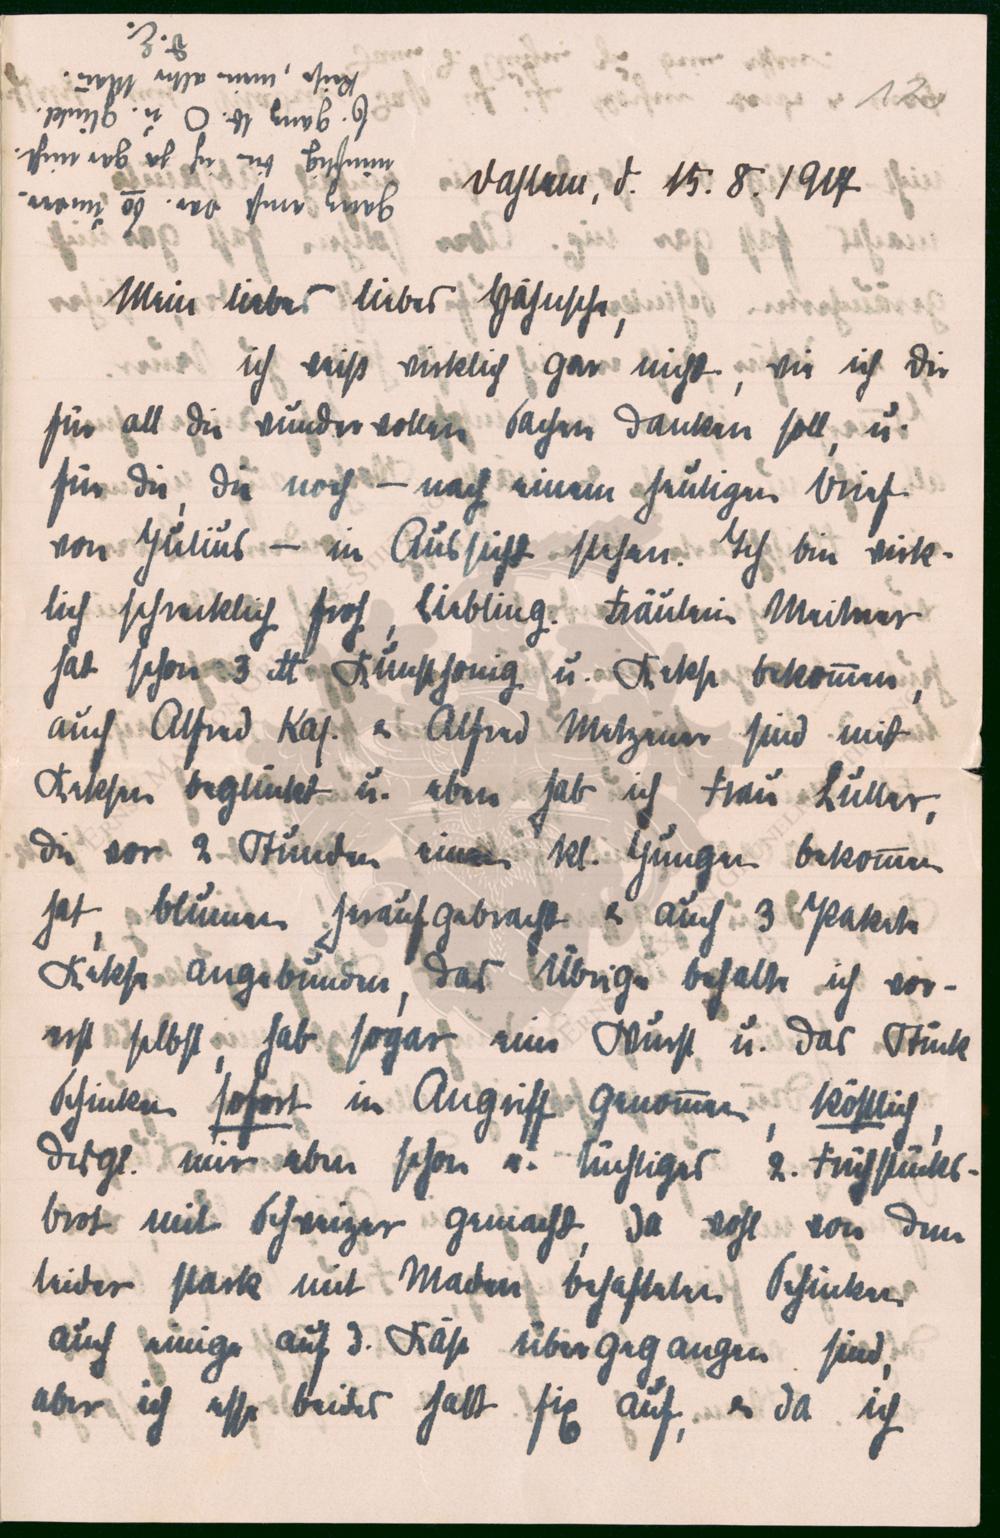 Dahlem, d. 15. 8. 1917
Mein liebes liebes Hähnsche,
ich weiß wirklich gar nicht, wie ich Dir
für all die wundervollen Sachen danken soll, u.
für die, die noch – nach einem heutigen Brief
von Julius – in Aussicht stehen. Ich bin wirk-
lich schrecklich froh, Liebling. Fräulein Meitner
hat schon 3 ℔ Kunsthonig u. Kekse bekom̅en,
auch Alfred Kas. & Alfred Metzener sind mit
Keksen beglückt u. eben hab ich Frau Luller,
die vor 2 Stunden einen kl. Jungen bekom̅en
hat, Blumen heraufgebracht & auch 3 Pakete
Kekse angebunden, das Übrige behalte ich vor-
erst selbst, hab sogar eine Wurst u. das Stück
Schinken sofort in Angriff genom̅en, köstlich,
desgl. mir eben schon e. tüchtiges 2. Frühstücks-
brot mit Schweizer gemacht, da wohl von dem
leider stark mit Maden behafteten Schinken
auch einige auf d. Käse übergegangen sind,
aber ich esse beides halt fix auf, & da ich
ganz
ja gar nicht.
S. ganz u. glückl.
Reise, mein alter
D. E.